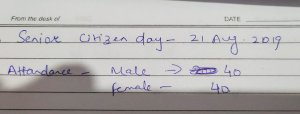 From the desk of DATE
Senior Citizen day - 21 Aug. 2019
Attandance - Male → 40
female - 40